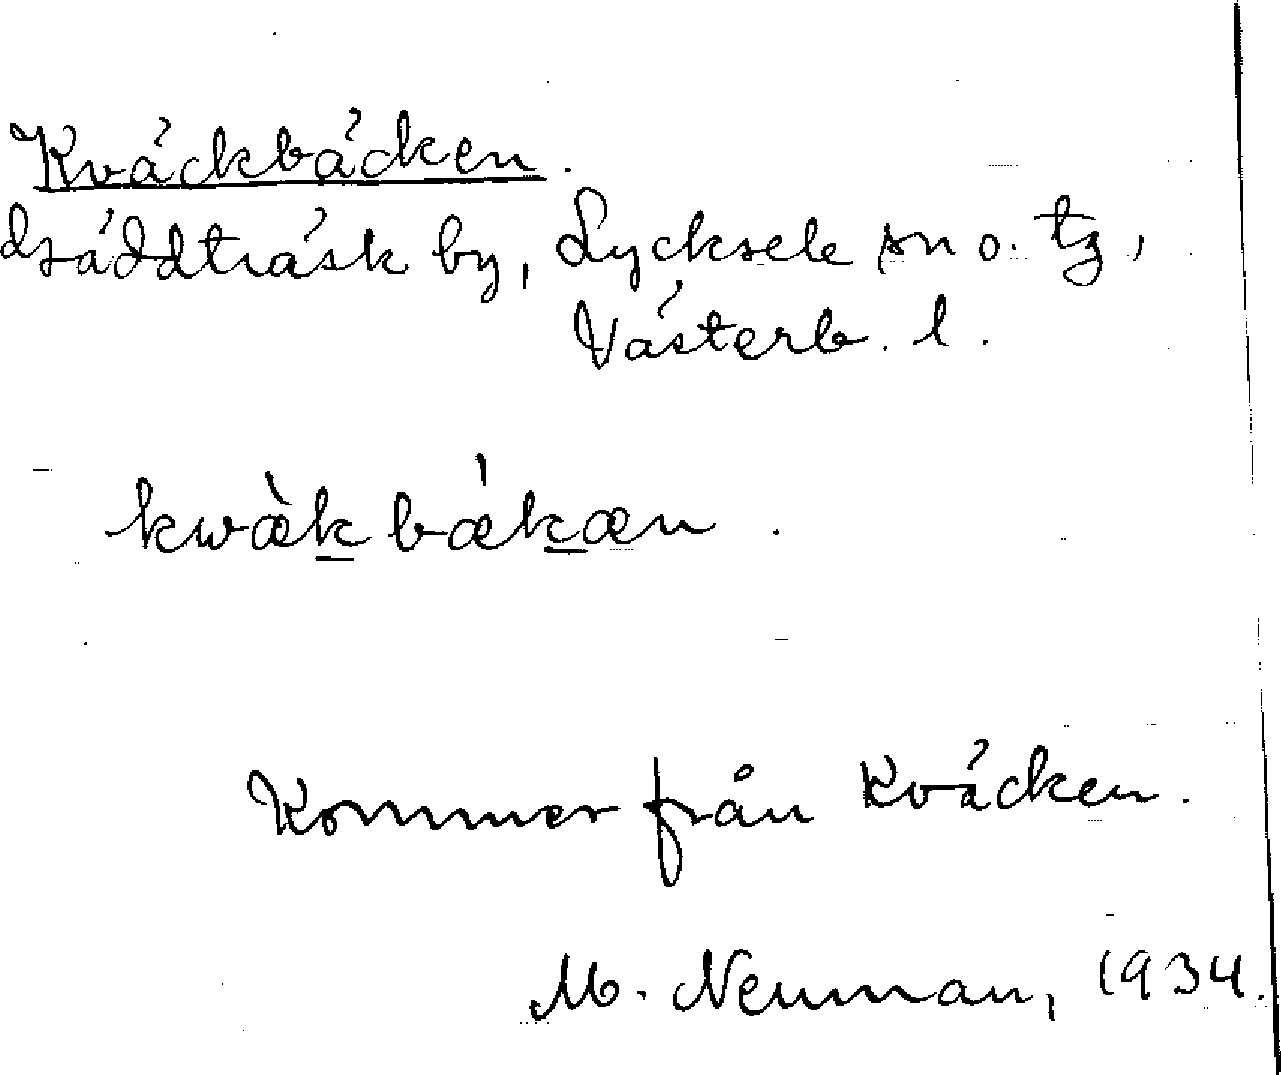 Kväckbäcken.
Bräddträsk by, Lycksele sn o. tg,
Västerb. l.
kwæ̀k̲bæ̍k̲æn.
Kommer från Kväcken.
M. Neuman, 1934.